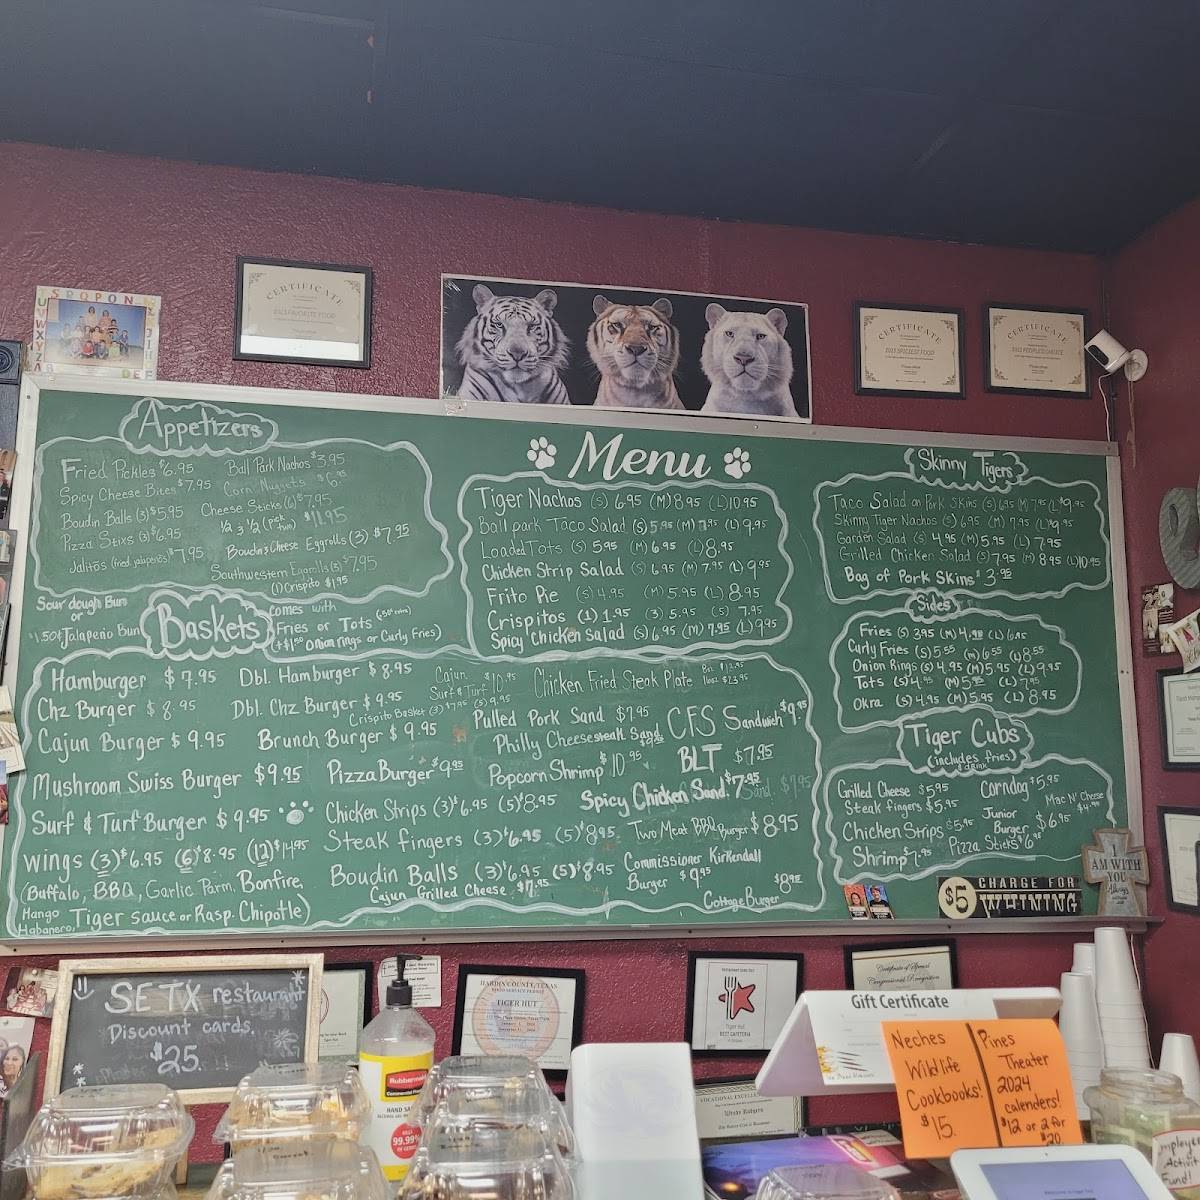 CERTIFICATE
2023 FAVORITE FOOD
CERTIFICATE
2023 SPICIEST FOOD
CERTIFICATE
2023 PEOPLE'S CHOICE
Appetizers
Fried Pickles $6.95
Spicy Cheese Bites $7.95
Boudin Balls (3) $5.95
Pizza Stixs (3) $6.95
Jalitos (fried jalapenos) $7.95
Ball Park Nachos $3.95
Corn Nuggets $6.95
Cheese Sticks (6) $7.95
1/2 & 1/2 (Pick two) $11.95
Boudin & Cheese Eggrolls (3) $7.95
Southwestern Eggrolls (3) $7.95
(1) Crispito $1.95
Sour dough Bun
or
$1.50 Jalapeño Bun
Baskets
comes with
Fries or Tots (.50¢ extra)
(+$1.50 onion rings or Curly Fries)
Hamburger $7.95
Chz Burger $8.95
Cajun Burger $9.95
Mushroom Swiss Burger $9.95
Surf & Turf Burger $9.95
wings (3) $6.95 (6) $8.95 (12) $14.95
(Buffalo, BBQ, Garlic Parm, Bonfire,
Mango Habanero, Tiger sauce or Rasp. Chipotle)
Dbl. Hamburger $8.95
Dbl. Chz Burger $9.95
Crispito Basket (3) $7.95 (5) 9.95
Brunch Burger $9.95
Pizza Burger $9.95
Chicken Strips (3) $6.95 (5) $8.95
Steak fingers (3) $6.95 (5) $8.95
Boudin Balls (3) $6.95 (5) $8.95
Cajun Grilled Cheese $7.95
Cajun Surf & Turf $10.95
Chicken Fried Steak Plate
Pulled Pork Sand $7.95
Philly Cheesesteak Sand. $9.95
Popcorn Shrimp $10.95
CFS Sandwich $9.95
BLT $7.95
Spicy Chicken Sand. $7.95
Two Meat BBQ Burger $8.95
Commissioner Kirkendall
Burger $9.95
Cottage Burger $8.95
Menu
Tiger Nachos (S) 6.95 (M) 8.95 (L) 10.95
Ball park Taco Salad (S) 5.95 (M) 7.95 (L) 9.95
Loaded Tots (S) 5.95 (M) 6.95 (L) 8.95
Chicken Strip Salad (S) 6.95 (M) 7.95 (L) 9.95
Frito Pie (S) 4.95 (M) 5.95 (L) 8.95
Crispitos (1) 1.95 (3) 5.95 (5) 7.95
Spicy chicken Salad (S) 6.95 (M) 7.95 (L) 9.95
Skinny Tigers
Taco Salad on Pork Skins (S) 6.95 (M) 7.95 (L) $9.95
Skinny Tiger Nachos (S) 6.95 (M) 7.95 (L) $9.95
Garden Salad (S) 4.95 (M) 5.95 (L) 7.95
Grilled Chicken Salad (S) 7.95 (M) 8.95 (L) 10.95
Bag of Pork Skins $3.95
Sides
Fries (S) 3.95 (M) 4.95 (L) 6.95
Curly Fries (S) 5.55 (M) 6.55 (L) 8.55
Onion Rings (S) 4.95 (M) 5.95 (L) 9.95
Tots (S) 4.95 (M) 5.95 (L) 7.95
Okra (S) 4.95 (M) 5.95 (L) 8.95
Tiger Cubs
(includes fries)
& drink
Grilled Cheese $5.95
Steak fingers $5.95
Chicken Strips $5.95
Shrimp $7.95
Corndog $5.95
Mac N' Cheese $4.95
Junior Burger $6.95
Pizza Sticks $6.95
$5 CHARGE FOR
WHINING
I
AM WITH
YOU
Always
SETX restaurant
Discount cards.
$25.
HARDIN COUNTY, TEXAS
FOOD SERVICE PERMIT
TIGER HUT
Tiger Hut
BEST CAFETERIA
Certificate of Special
Congressional Recognition
Gift Certificate
Neches
Wildlife
Cookbooks!
$15.
Pines
Theater
2024
calenders!
$12 or 2 for
$20
Rubbermaid
Commercial Products
HAND SA
99.99%
Employee
Activity
Fund!